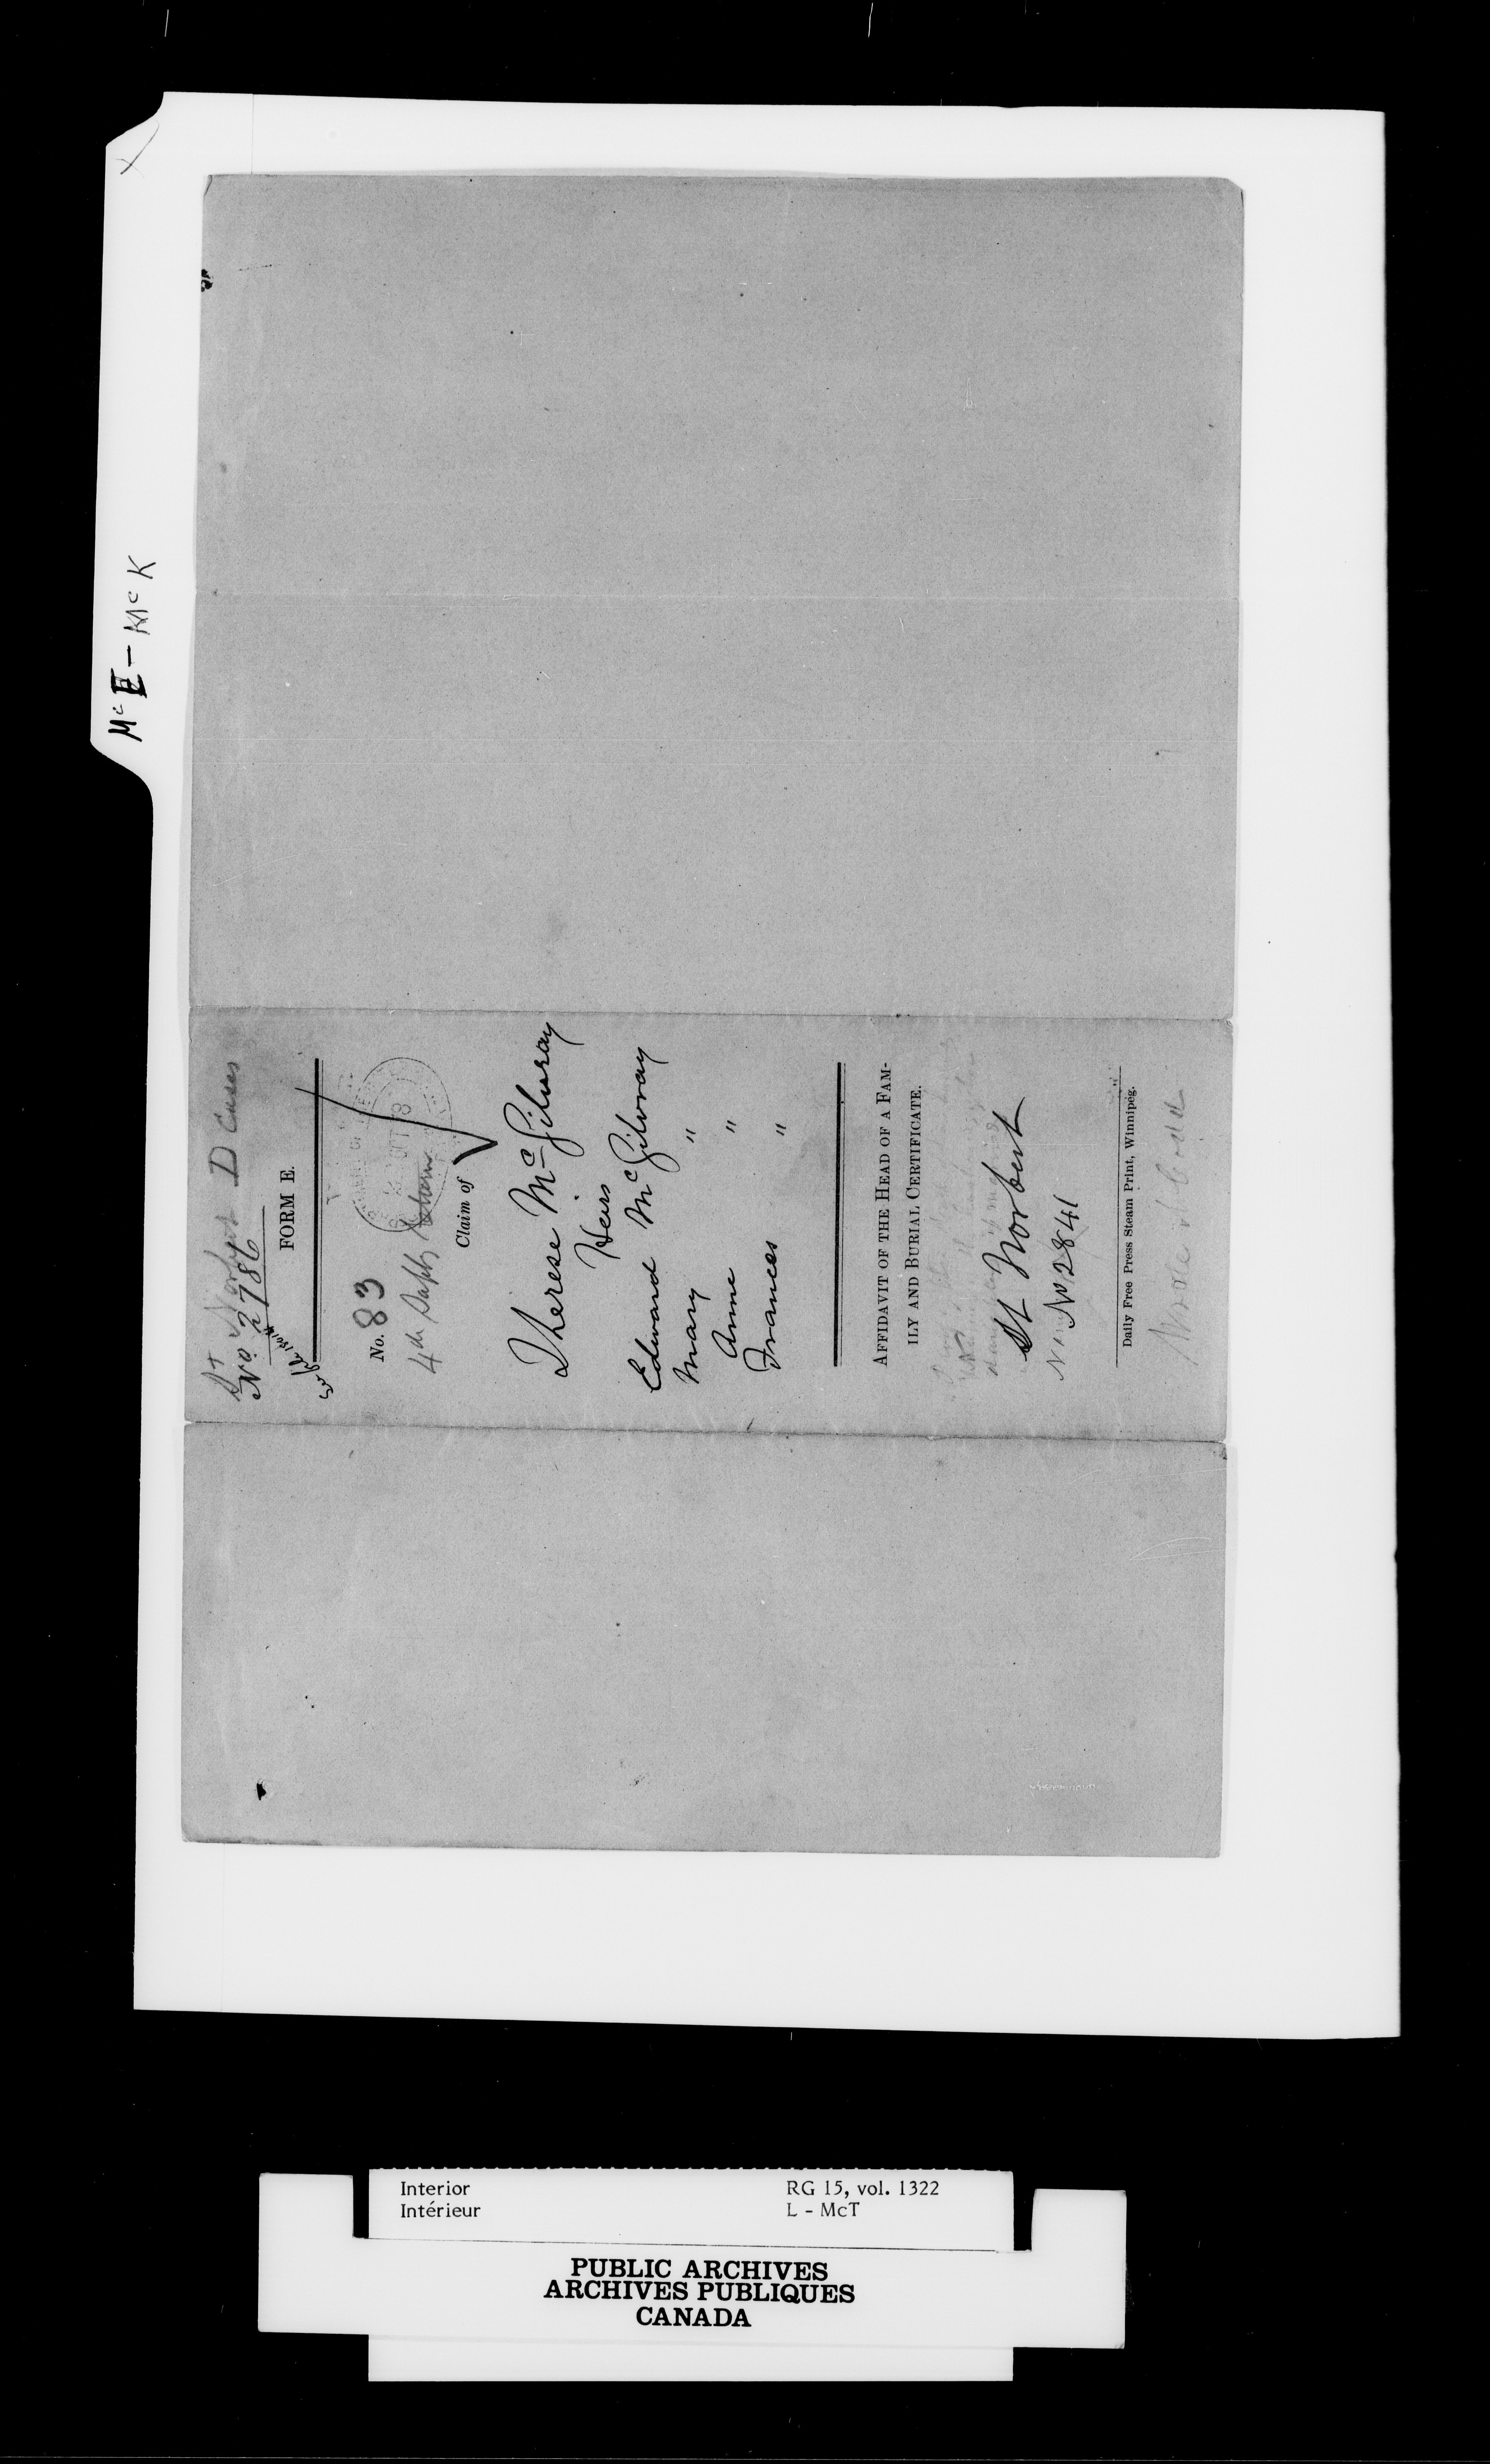 Mc E - McK
St Norbert D Cases
No. 2786
FORM E.
No. 83
4th Supply Return
Claim of
Therese McGilvray
Heirs
Edward McGilvray
Mary "
Anne "
Frances "
AFFIDAVIT OF THE HEAD OF A FAM-
ILY AND BURIAL CERTIFICATE.
St Norbert
No 2841
Daily Free Press Steam Print, Winnipeg.
Interior
Intérieur
RG 15, vol. 1322
L - McT
PUBLIC ARCHIVES
ARCHIVES PUBLIQUES
CANADA